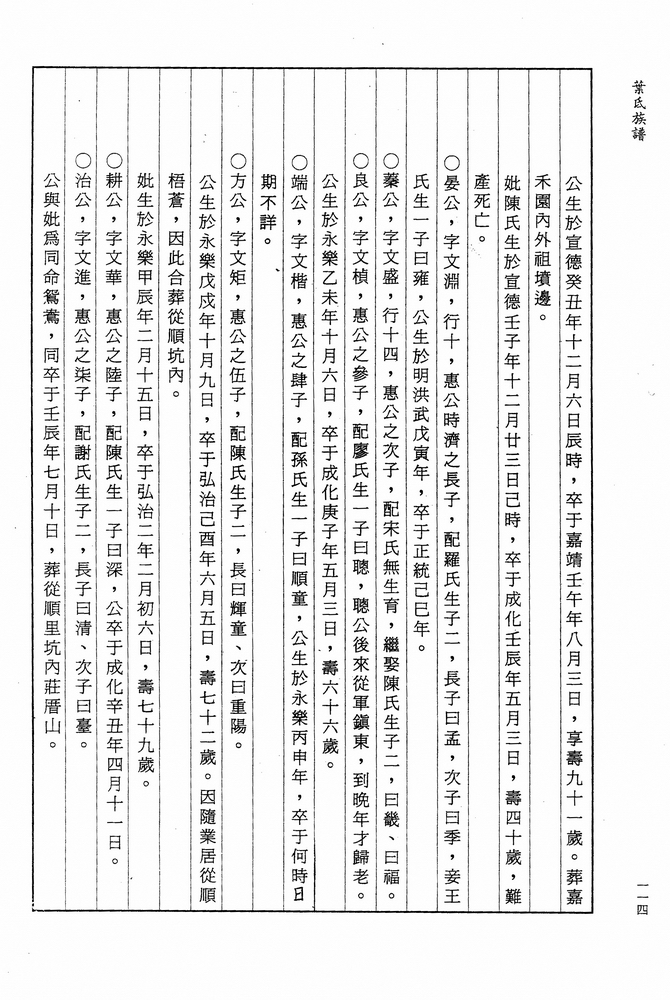 葉氏族譜
公生於宣德癸丑年十二月六日辰時，卒于嘉靖壬午年八月三日，享壽九十一歲。葬嘉
禾園內外祖墳邊。
妣陳氏生於宣德壬子年十二月廿三日己時，卒于成化壬辰年五月三日，壽四十歲，難
產死亡。
○晏公，字文淵，行十，惠公時濟之長子，配羅氏生子二，長子曰孟，次子曰季，妾王
氏生一子曰雍，公生於明洪武戊寅年，卒于正統己巳年。
○蓁公，字文盛，行十四，惠公之次子，配宋氏無生育，繼娶陳氏生子二，曰畿、曰福。
○良公，字文楨，惠公之參子，配廖氏生一子曰聰，聰公後來從軍鎮東，到晚年才歸老。
公生於永樂乙未年十月六日，卒于成化庚子年五月三日，壽六十六歲。
○端公，字文楷，惠公之肆子，配孫氏生一子曰順童，公生於永樂丙申年，卒于何時日
期不詳。
○方公，字文矩，惠公之伍子，配陳氏生子二，長曰輝童、次曰重陽。
公生於永樂戊戌年十月九日，卒于弘治己酉年六月五日，壽七十二歲。因隨業居從順
梧蒼，因此合葬從順坑內。
妣生於永樂甲辰年二月十五日，卒于弘治二年二月初六日，壽七十九歲。
○耕公，字文華，惠公之陸子，配陳氏生一子曰深，公卒于成化辛丑年四月十一日。
○治公，字文進，惠公之柒子，配謝氏生子二，長子曰清、次子曰臺。
公與妣爲同命鴛鴦，同卒于壬辰年七月十日，葬從順里坑內莊厝山。
一一四